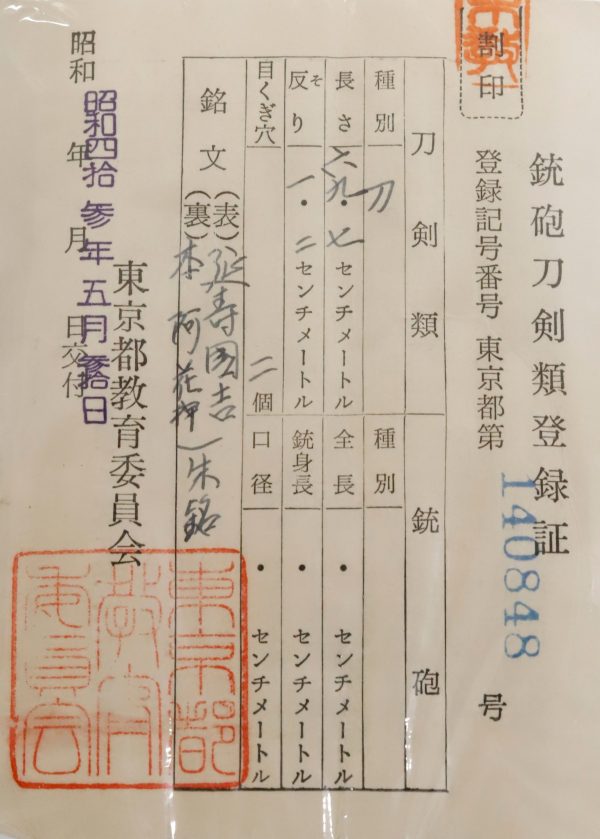 銃砲刀剣類登録証
割印
登録記号番号 東京都第 140848 号
刀剣類 銃砲
種別 刀 種別
長さ 六九・七 センチメートル 全長 ・ センチメートル
反り そ 一・二 センチメートル 銃身長 ・ センチメートル
目くぎ穴 二 個 口径 ・ センチメートル
銘文 (表) 延寿国吉
(裏) 本阿 花押 朱銘
東京都教育委員会
昭和 年 月 日交付
昭和四拾参年五月 拾日
東京都
教育
委員会